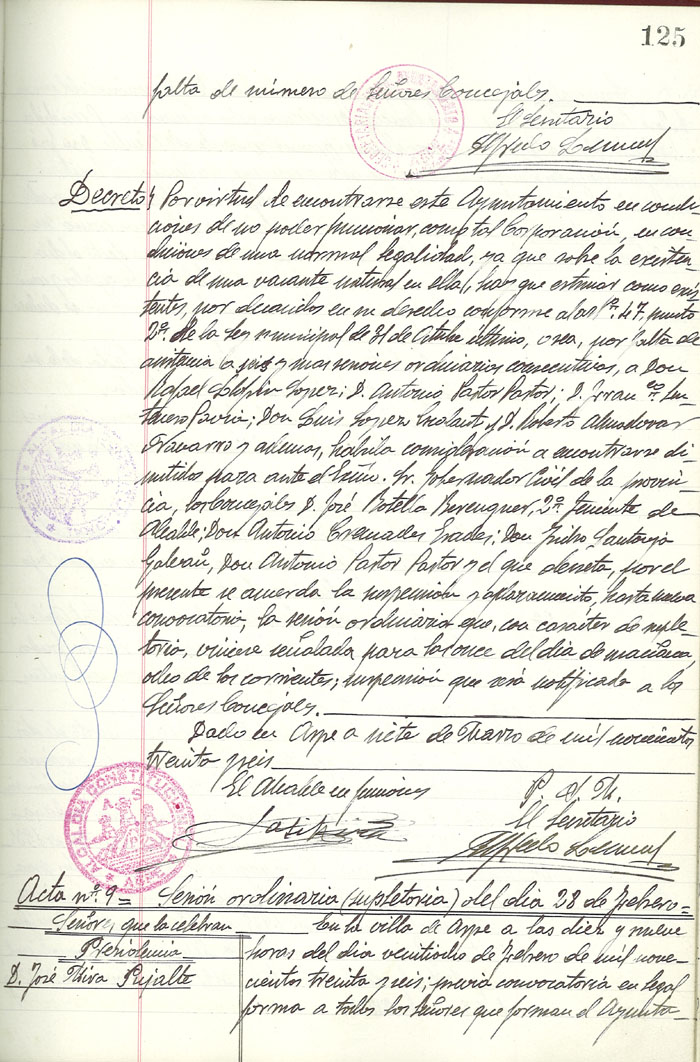 125
falta de número de Señores Concejales.
El Secretario
Alfredo
Decreto) Por virtud de encontrarse este Ayuntamiento en condi-
ciones de no poder funcionar, como tal Corporación, en con-
diciones de una normal legalidad, ya que sobre la existen-
cia de una vacante natural en ella, hay que estimar como exis-
tentes, por decaidos en su derecho conforme al art.º 47, punto
2º. de la Ley municipal de 31 de Octubre último, o sea, por falta de
asistencia a seis y mas sesiones ordinarias consecutivas, a Don
Rafael Lopez; D. Antonio Pastor Pastor; D. Fran co.
Pavia; Don Luis Lopez y D. Roberto Almodovar
Navarro y además, habida consideración a encontrarse di-
mitidos para ante el Exmo. Sr. Gobernador Civil de la provin-
cia, los Concejales D. José Botella Berenguer, 2º. Teniente de
Alcalde; Don Antonio Cremades; Don Isidro Santonja
Don Antonio Pastor Pastor y el que decreta, por el
presente se acuerda la suspensión y aplazamiento, hasta nueva
convocatoria, la sesión ordinaria que, con caracter de suple-
toria, viniere señalada para las once del día de mañana
ocho de los corrientes; suspensión que será notificada a los
Señores Concejales.
Dado en Aspe a siete de Marzo de mil novecientos
treinta y seis
El Alcalde en funciones
P. S. M.
El Secretario
Alfredo
ALCALDIA CONSTITUCIONAL
ASPE
Acta nº. 9 = Sesión ordinaria (supletoria) del dia 28 de Febrero=
Señores que la celebran
En la villa de Aspe a las diez y nueve
Presidencia
horas del dia veintiocho de Febrero de mil nove-
D. José Pujalte
cientos treinta y seis; previa convocatoria en legal
forma a todos los señores que forman el Ayunta-